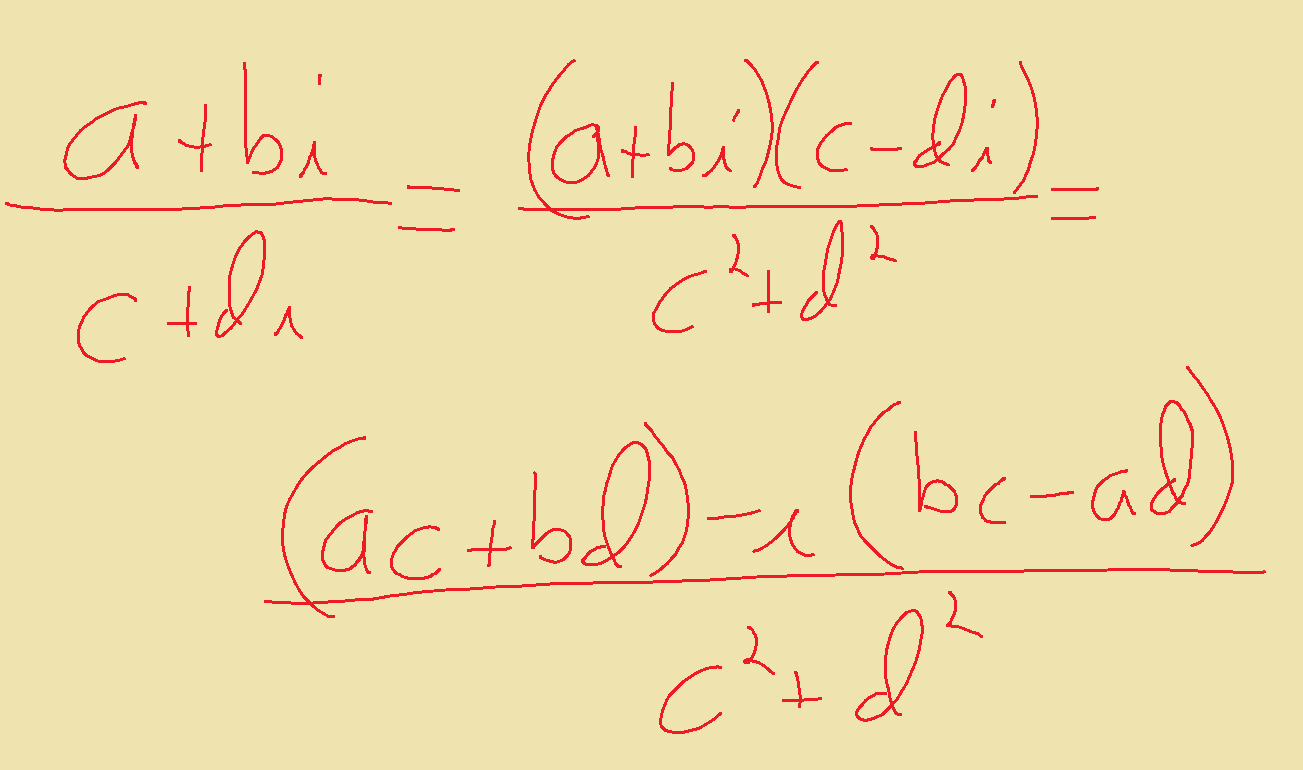 \frac{a+bi}{c+di} = \frac{(a+bi)(c-di)}{c^2+d^2} =
\frac{(ac+bd)-i(bc-ad)}{c^2+d^2}